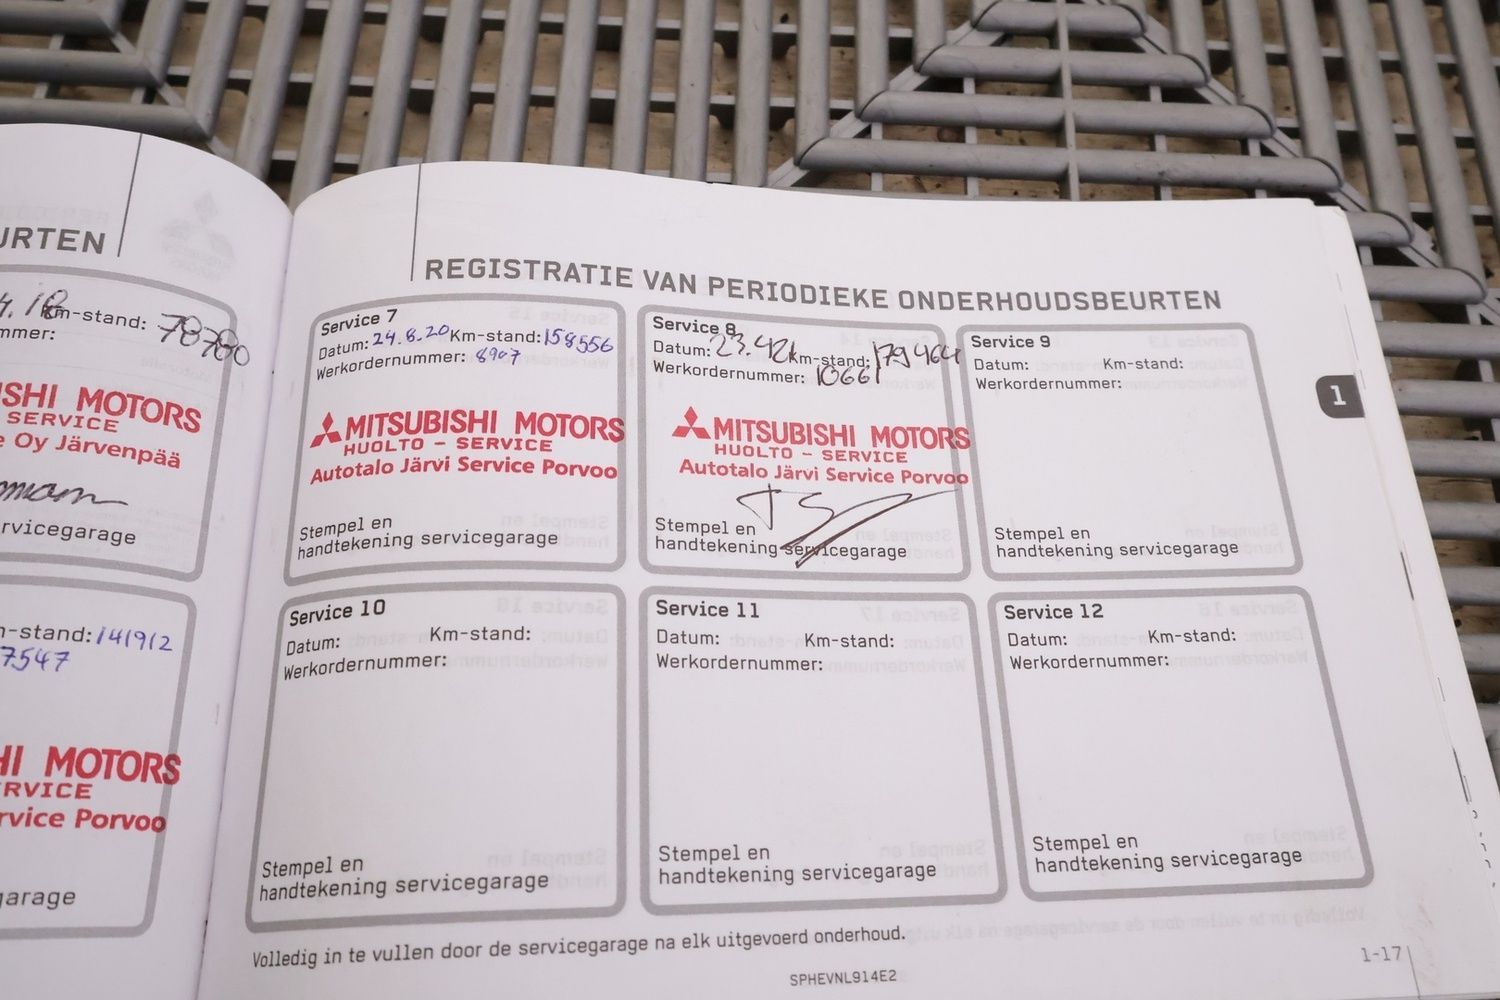 URTEN
Km-stand: 78780
mmer:
SHI MOTORS
SERVICE
e Oy Järvenpää
rvicegarage
-stand: 141912
7547
HI MOTORS
RVICE
rvice Porvoo
garage
REGISTRATIE VAN PERIODIEKE ONDERHOUDSBEURTEN
Service 7
Datum: 24.8.20 Km-stand: 158556
Werkordernummer: 8907
MITSUBISHI MOTORS
HUOLTO - SERVICE
Autotalo Järvi Service Porvoo
Stempel en
handtekening servicegarage
Service 8
Datum: 23.4.21 Km-stand: 179464
Werkordernummer: 10661
MITSUBISHI MOTORS
HUOLTO - SERVICE
Autotalo Järvi Service Porvoo
Stempel en
handtekening servicegarage
Service 9
Datum: Km-stand:
Werkordernummer:
Stempel en
handtekening servicegarage
1
Service 10
Datum: Km-stand:
Werkordernummer:
Stempel en
handtekening servicegarage
Service 11
Datum: Km-stand:
Werkordernummer:
Stempel en
handtekening servicegarage
Service 12
Datum: Km-stand:
Werkordernummer:
Stempel en
handtekening servicegarage
Volledig in te vullen door de servicegarage na elk uitgevoerd onderhoud.
1-17
SPHEVNL914E2